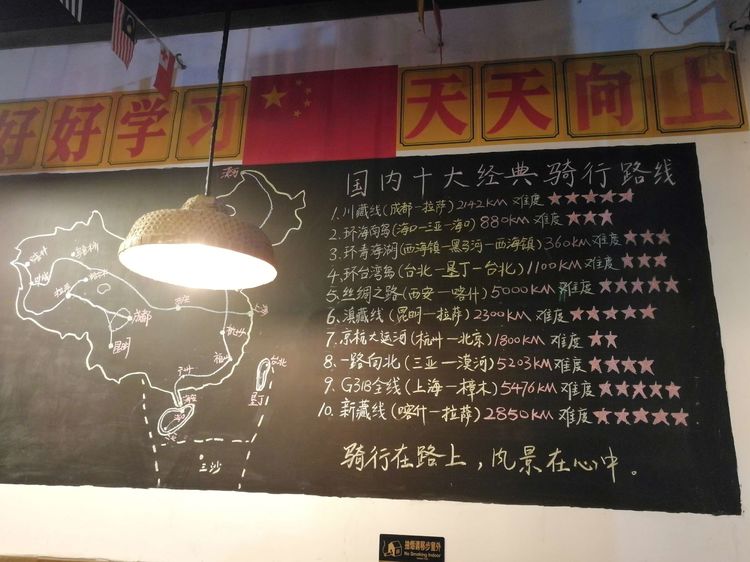 好好学习
天天向上
国内十大经典骑行路线
1. 川藏线(成都—拉萨)2142KM 难度★★★★★
2. 环海南岛(海口—三亚—海口)880KM 难度★★★
3. 环青海湖(西海镇—黑马河—西海镇)360KM 难度★★★
4. 环台湾岛(台北—垦丁—台北)1100KM 难度★★★
5. 丝绸之路(西安—喀什)5000KM 难度★★★★★
6. 滇藏线(昆明—拉萨)2300KM 难度★★★★★
7. 京杭大运河(杭州—北京)1800KM 难度★★
8. 一路向北(三亚—漠河)5203KM 难度★★★★
9. G318全线(上海—樟木)5476KM 难度★★★★★
10. 新藏线(喀什—拉萨)2850KM 难度★★★★★
骑行在路上，风景在心中。
漠河
喀什
拉萨
成都
昆明
西安
上海
杭州
福州
广州
台北
垦丁
三沙
抽烟请移步室外
No Smoking Indoor